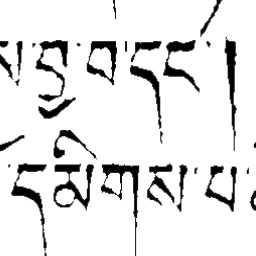 བ་དང་།
དམིགས་པ་